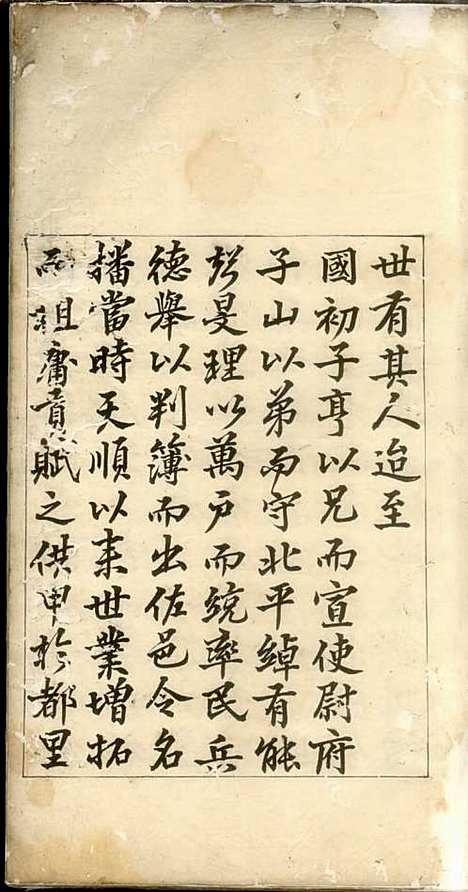 世有其人迨至
國初子亨以兄而宣使尉府
子山以弟而守北平綽有能
旻理以萬戶而統率民兵
德舉以判簿而出佐邑令名
播當時天順以来世業增拓
而租庸貢賦之供甲於都里